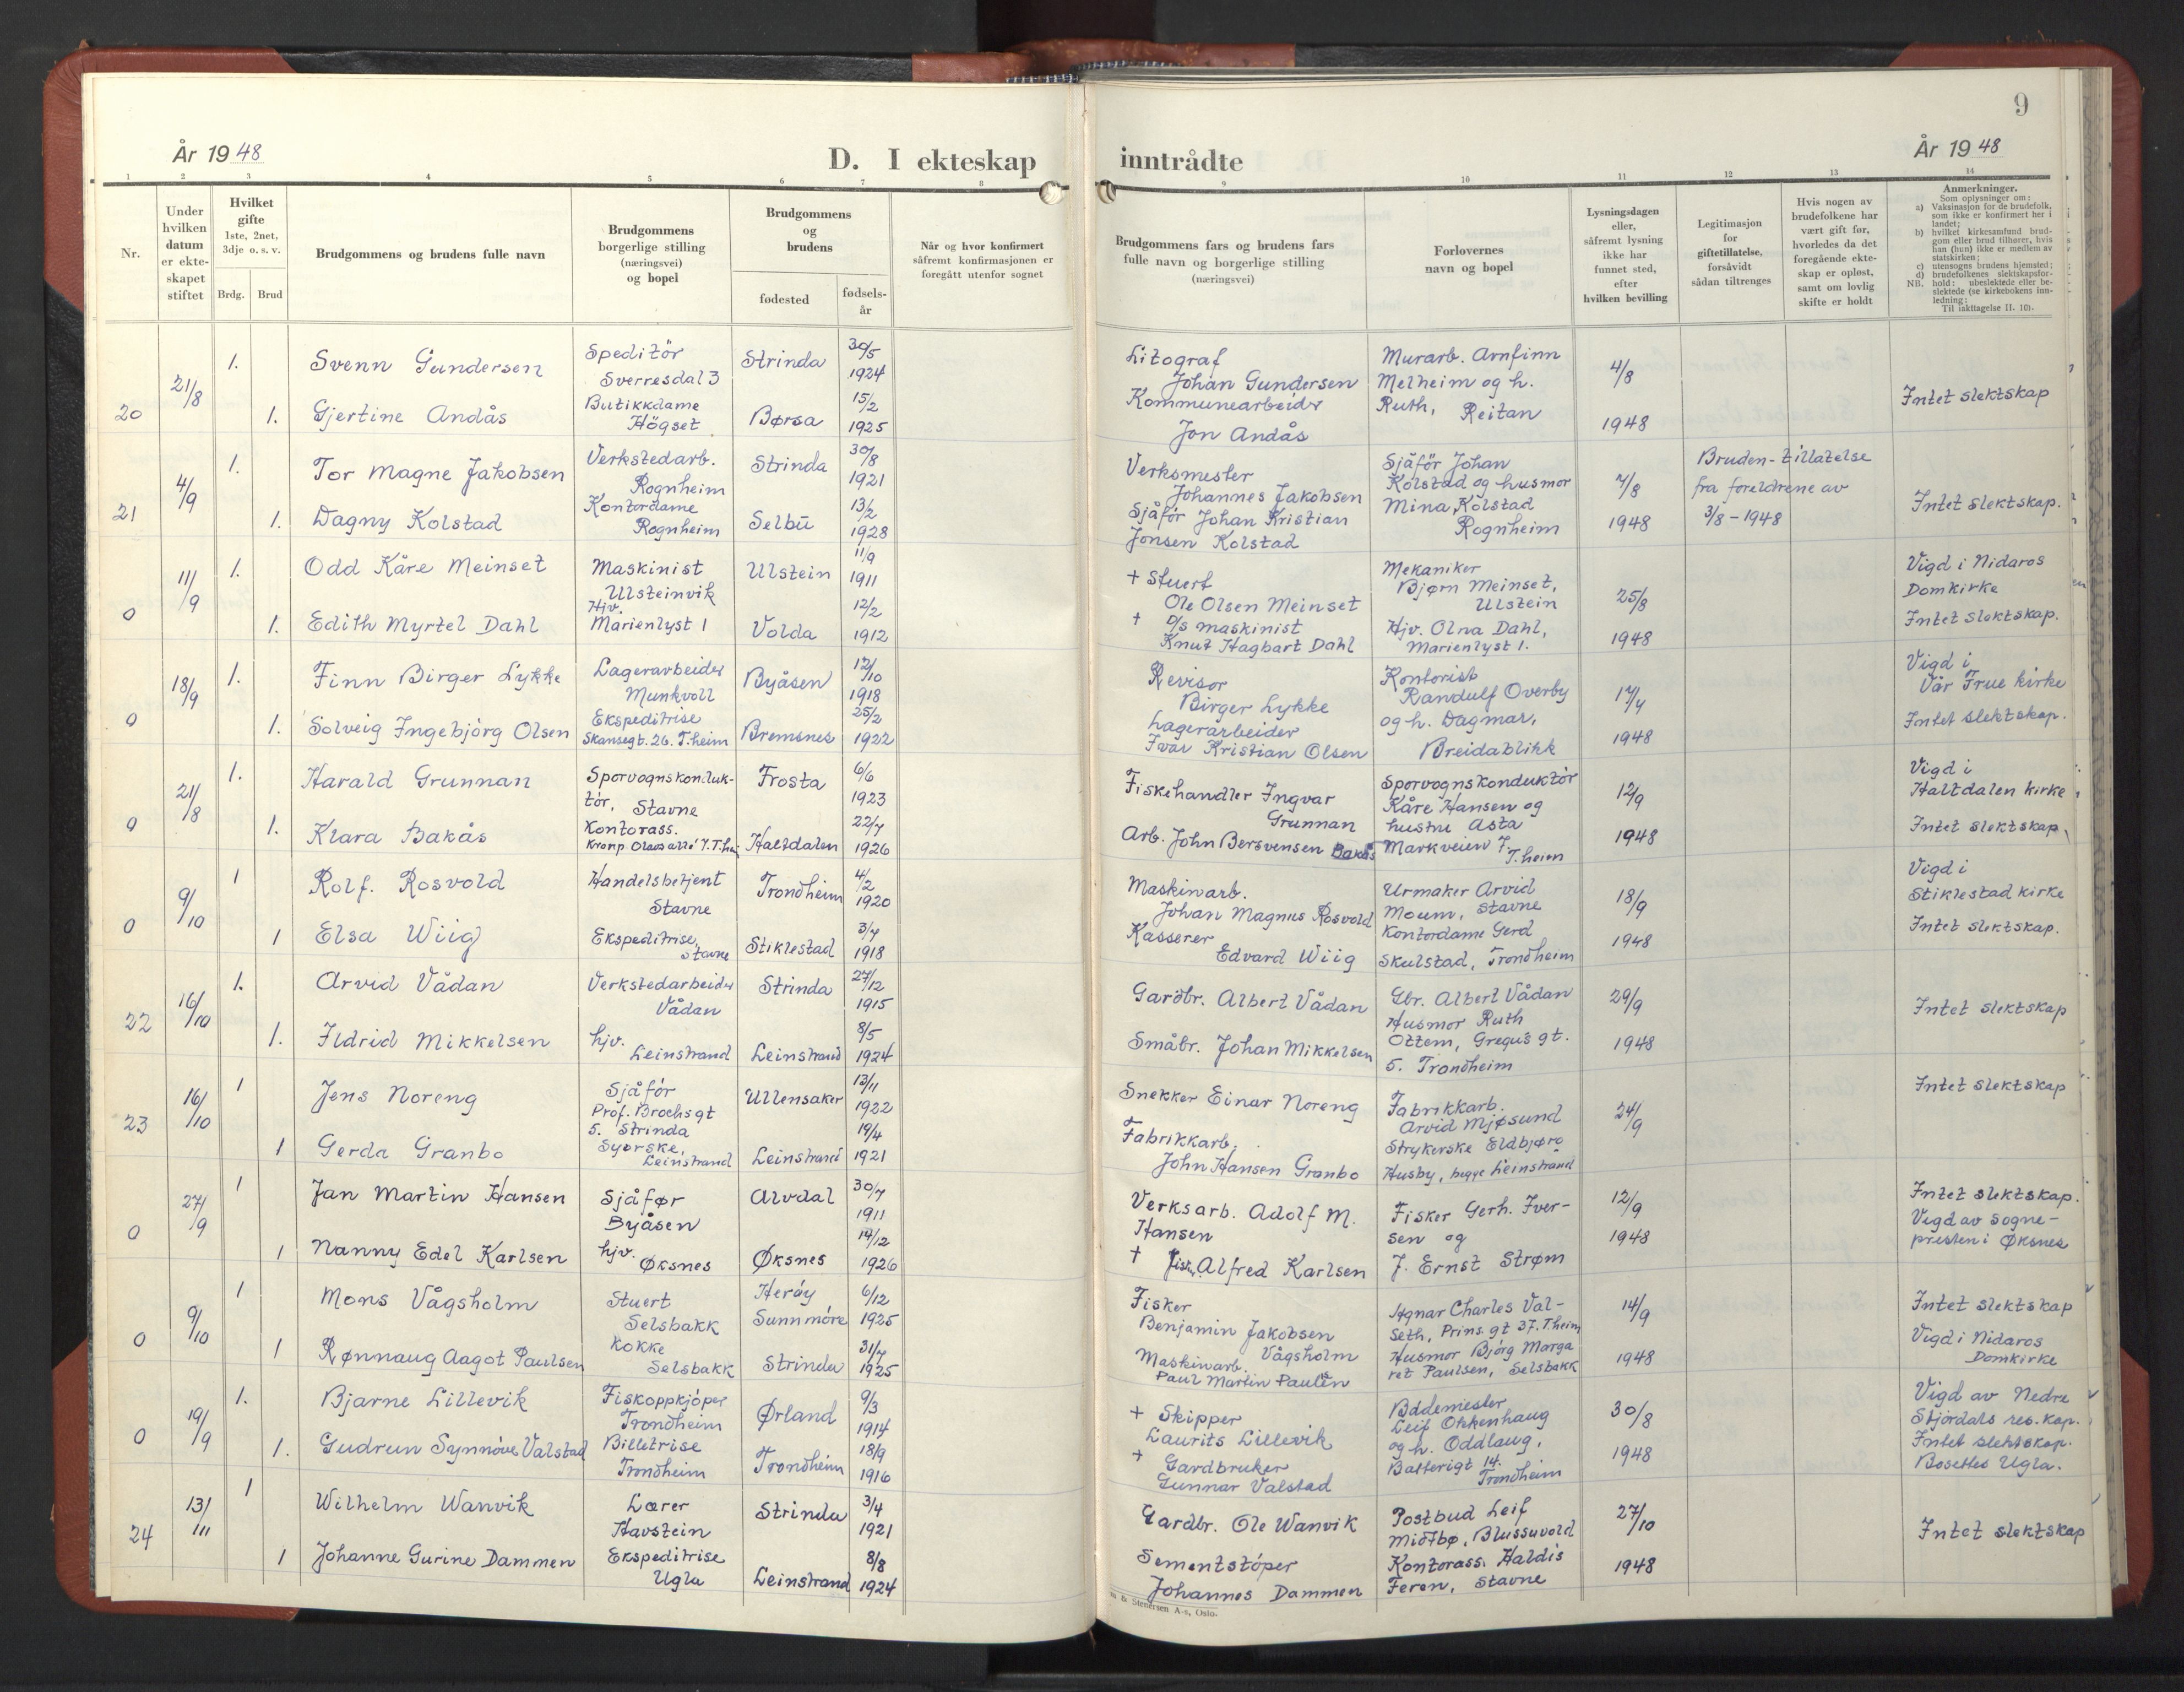 9
År 1948
D. I ekteskap inntrådte
År 1948
1 2 3 4 5 6 7 8 9 10 11 12 13 14
Nr.
Under hvilken datum er ekteskapet stiftet
Hvilket gifte
1ste, 2net, 3dje o. s. v.
Brdg. Brud
Brudgommens og brudens fulle navn
Brudgommens borgerlige stilling (næringsvei) og bopel
Brudgommens og brudens
fødested
fødselsår
Når og hvor konfirmert såfremt konfirmasjonen er foregått utenfor sognet
Brudgommens fars og brudens fars fulle navn og borgerlige stilling (næringsvei)
Forlovernes navn og bopel
Lysningsdagen eller, såfremt lysning ikke har funnet sted, efter hvilken bevilling
Legitimasjon for giftetillatelse, forsåvidt sådan tiltrenges
Hvis nogen av brudefolkene har vært gift før, hvorledes da det foregående ekteskap er opløst, samt om lovlig skifte er holdt
Anmerkninger.
Som oplysninger om:
a) Vaksinasjon for de brudefolk, som ikke er konfirmert her i landet;
b) hvilket kirkesamfund brudgom eller brud tilhører, hvis han (hun) ikke er medlem av statskirken;
c) utensogns brudens hjemsted;
d) brudefolkenes slektskapsforhold: ubeslektede eller beslektede (se kirkebokens innledning;
NB. Til iakttagelse II. 10).
20 21/8
1. Svenn Gundersen Speditör Sverresdal 3 Strinda 30/5 1924
1. Gjertine Andås Butikkdame Högset Børsa 15/2 1925
Litograf Johan Gundersen
Kommunearbeider Jon Andås
Murarb. Arnfinn Melheim og h. Ruth, Reitan
4/8 1948
Intet slektskap
21 4/9
1. Tor Magne Jakobsen Verkstedarb. Rognheim Strinda 30/8 1921
1. Dagny Kolstad Kontordame Rognheim Selbu 13/2 1928
Verksmester Johannes Jakobsen
Sjåför Johan Kristian Jonsen Kolstad
Sjåför Johan Kolstad og husmor Mina Kolstad Rognheim
7/8 1948
Bruden - tillatelse fra foreldrene av 3/8 - 1948
Intet slektskap.
0 11/9
1. Odd Kåre Meinset Maskinist Ulsteinvik Ulstein 11/9 1911
1. Edith Myrtel Dahl Hjv. Marienlyst 1 Volda 12/2 1912
+ Stuert Ole Olsen Meinset
+ D/s maskinist Knut Hagbart Dahl
Mekaniker Bjørn Meinset, Ulstein
Hjv. Olna Dahl, Marienlyst 1.
25/8 1948
Vigd i Nidaros Domkirke
Intet slektskap.
0 18/9
1. Finn Birger Lykke Lagerarbeider Munkvoll Byåsen 12/10 1918
1. Solveig Ingebjörg Olsen Ekspeditrise Skansegt. 26. T.heim Bremsnes 25/2 1922
Revisor Birger Lykke
Lagerarbeider Ivar Kristian Olsen
Kontorist Randulf Overby og h. Dagmar, Breidablikk
17/7 1948
Vigd i Vår Frue kirke
Intet slektskap.
0 21/8
1. Harald Grunnan Sporvognskonduktör, Stavne Frosta 6/6 1923
1. Klara Bakås Kontorass. Kronp. Olavs allé 7. T.heim Haltdalen 22/7 1926
Fiskehandler Ingvar Grunnan
Arb. John Bersvensen Bakås
Sporvognskonduktör Kåre Hansen og hustru Asta Markveien 7 T.heim
12/9 1948
Vigd i Haltdalen kirke
Intet slektskap
0 9/10
1 Rolf. Rosvold Handelsbetjent Stavne Trondheim 4/2 1920
1 Elsa Wiig Ekspeditrise, Stavne Stiklestad 3/7 1918
Maskinarb. Johan Magnus Rosvold
Kasserer Edvard Wiig
Urmaker Arvid Moum, Stavne
Kontordame Gerd Skulstad, Trondheim
18/9 1948
Vigd i Stiklestad kirke
Intet slektskap.
22 16/10
1. Arvid Vådan Verkstedarbeider Vådan Strinda 27/12 1915
1. Ildrid Mikkelsen hjv. Leinstrand Leinstrand 8/5 1924
Gardbr. Albert Vådan
Småbr. Johan Mikkelsen
Gbr. Albert Vådan
Husmor Ruth Ottem, Gregus gt. 5. Trondheim
29/9 1948
Intet slektskap
23 16/10
1 Jens Noreng Sjåför Prof. Brochs gt 5. Strinda Ullensaker 13/11 1922
1 Gerda Granbo Syerske, Leinstrand Leinstrand 19/4 1921
Snekker Einar Noreng
Fabrikkarb. John Hansen Granbo
Fabrikkarb. Arvid Mjøsund
Strykerske Eldbjørg Husby, begge Leinstrand
24/9
Intet slektskap
0 27/9
1 Jan Martin Hansen Sjåfør Byåsen Alvdal 30/7 1911
1 Nanny Edel Karlsen hjv. Øksnes Øksnes 14/12 1926
Verksarb. Adolf M. Hansen
+ Fisk. Alfred Karlsen
Fisker Gerh. Iversen og J. Ernst Strøm
12/9 1948
Intet slektskap.
Vigd av sognepresten i Øksnes
0 9/10
1 Mons Vågsholm Stuert Selsbakk Heröy Sunnmöre 6/12 1925
1 Rønnaug Aagot Paulsen Kokke Selsbakk Strinda 31/7 1925
Fisker Benjamin Jakobsen Vågsholm
Maskinarb. Paul Martin Paulen
Agnar Charles Valseth, Prins. gt 37. T.heim
Husmor Björg Margaret Paulsen, Selsbakk
14/9 1948
Intet slektskap
Vigd i Nidaros Domkirke
0 19/9
1. Bjarne Lillevik Fiskoppkjöper Trondheim Ørland 9/3 1914
1. Gudrun Synnöve Valstad Billetrise Trondheim Trondheim 18/9 1916
+ Skipper Laurits Lillevik
+ Gardbruker Gunnar Valstad
Bademester Leif Okkenhaug og h. Oddlaug, Balterigt 14. Trondheim
30/8 1948
Vigd av Nedre Stjördals res. kap.
Intet slektskap.
Bosettes Ugla.
24 13/11
1 Wilhelm Wanvik Lærer Havstein Strinda 3/4 1921
1 Johanne Gurine Dammen Ekspeditrise Ugla Leinstrand 8/8 1924
Gardbr. Ole Wanvik
Sementstöper Johannes Dammen
Postbud Leif Midtbø, Blussuvold
Kontorass. Haldis Feren, Stavne
27/10 1948
Intet slektskap
Stenersen A-s, Oslo.